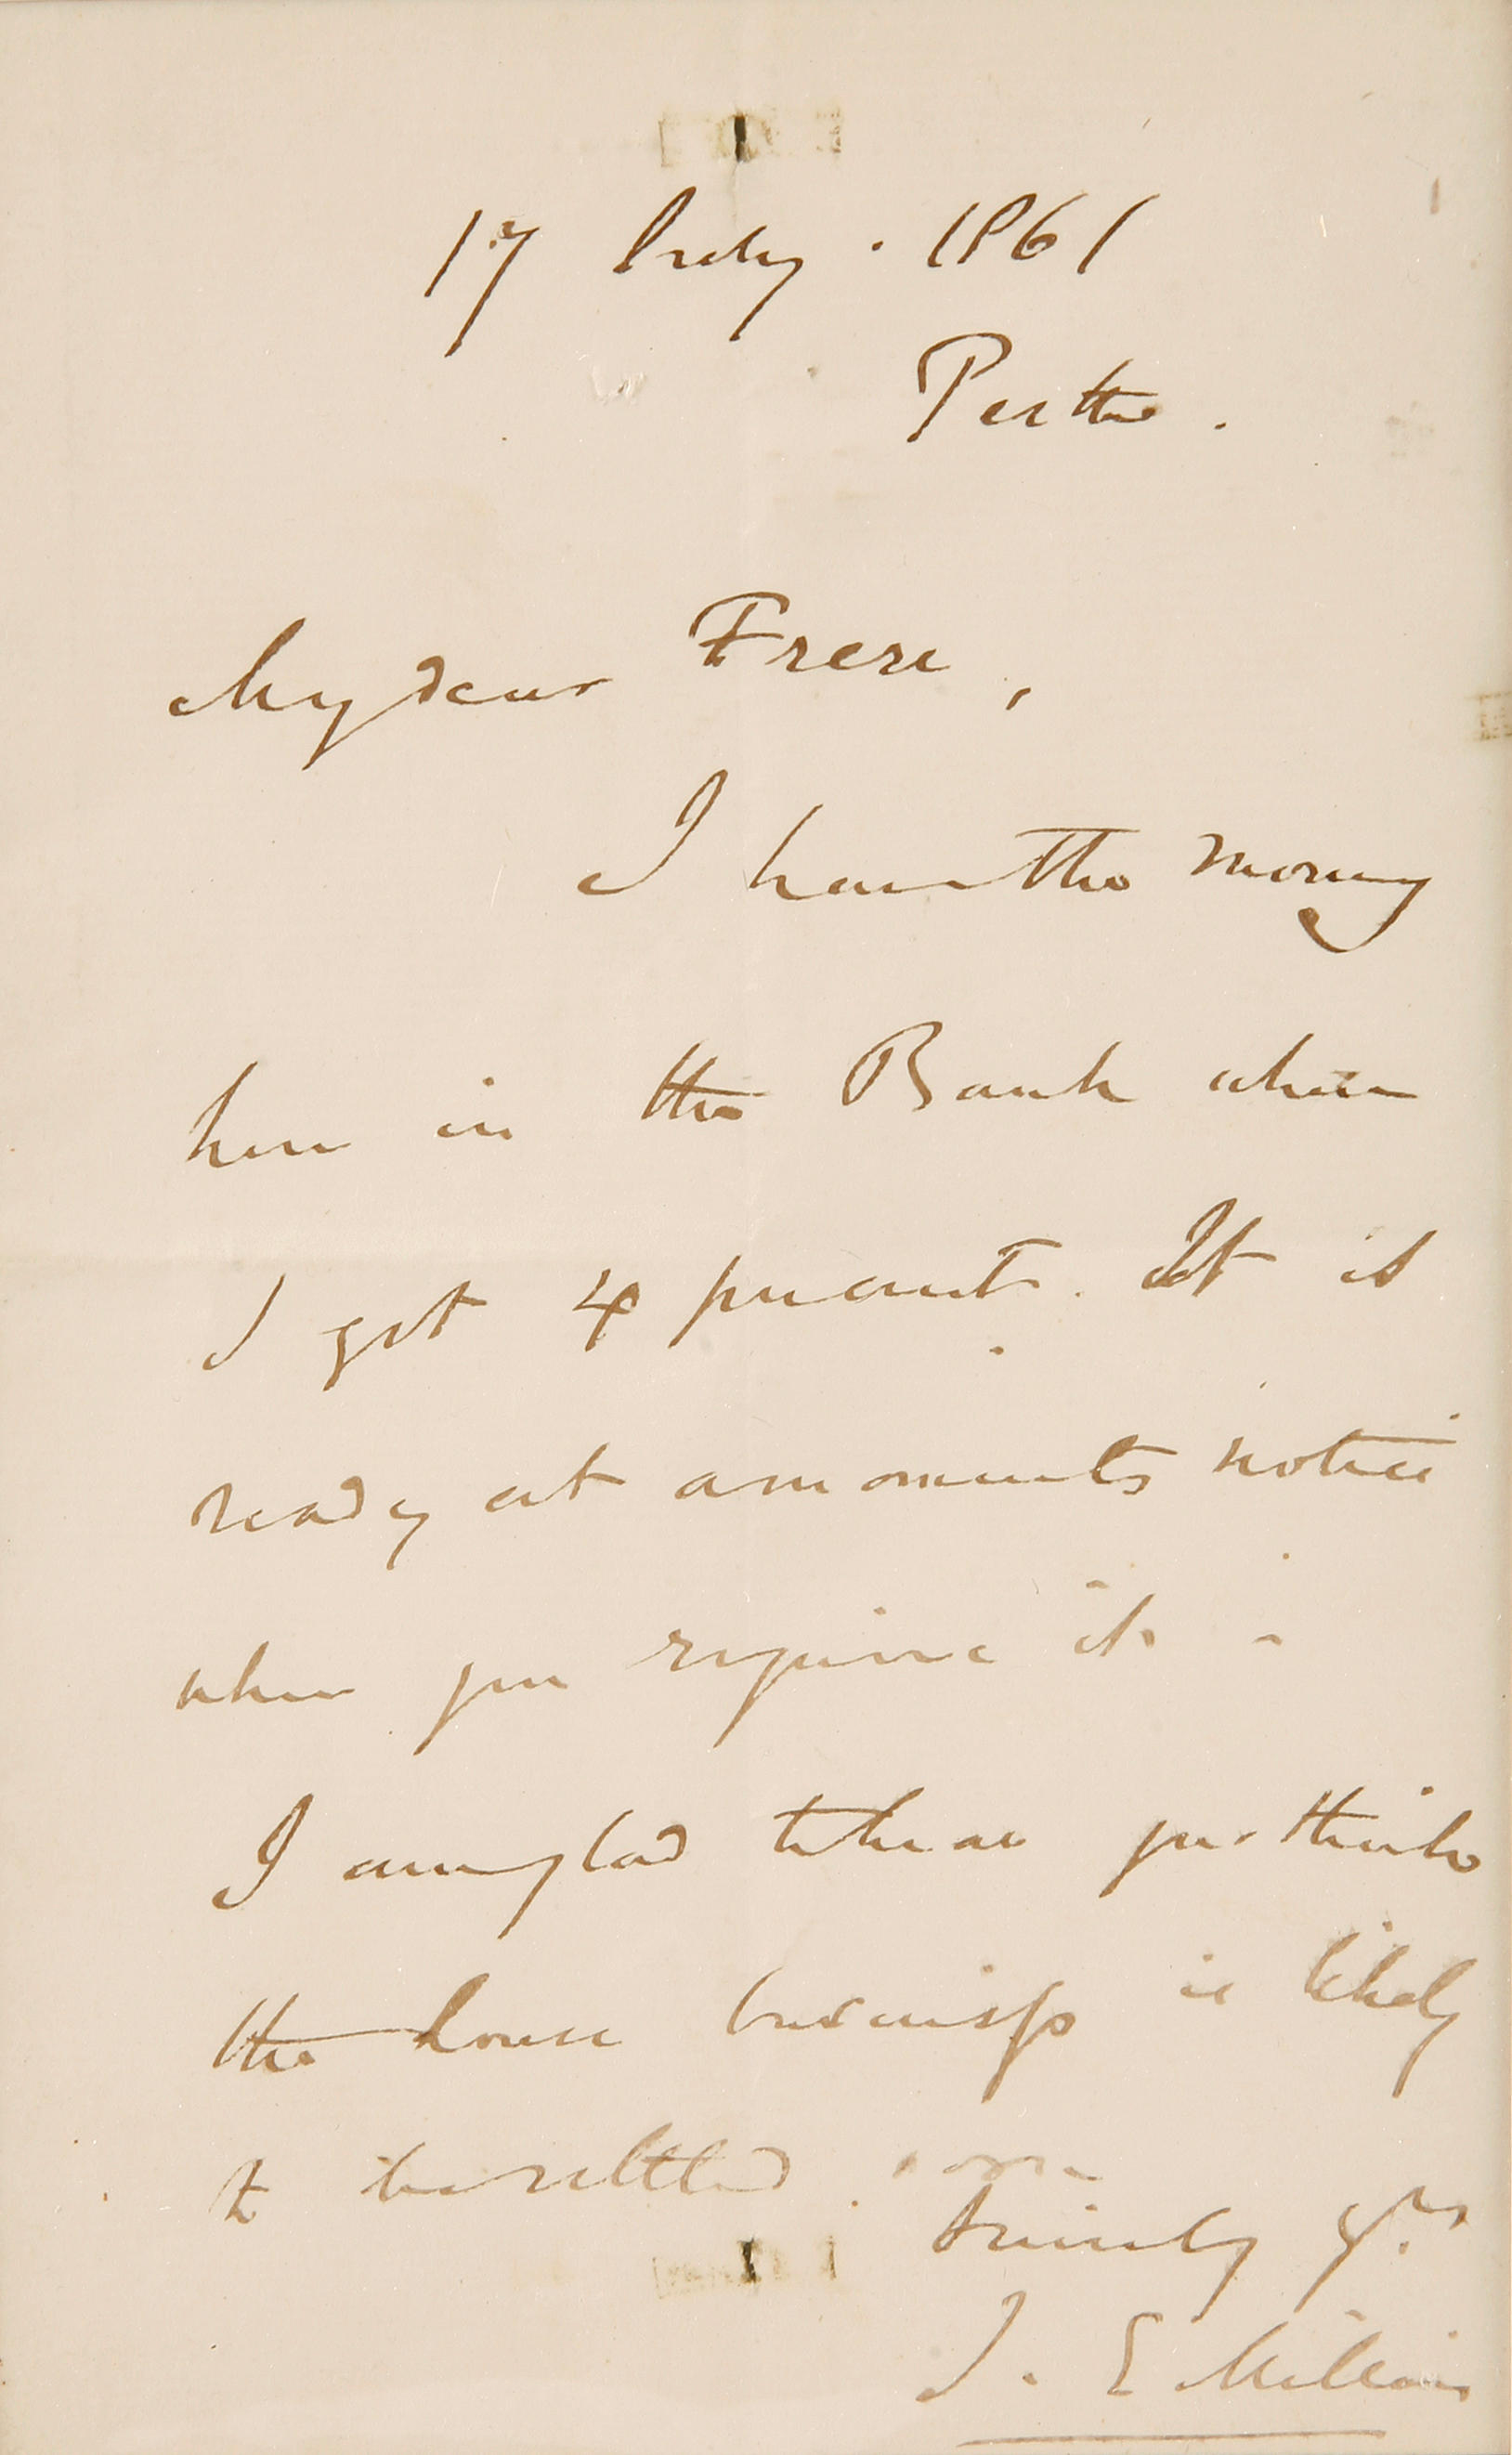 17 July . 1861
Perth .
My dear Frere ,
I have the money
here in the Bank where
I get 4 percent. It is
ready at a moments notice
when you require it -
I am glad to hear you think
the house business is likely
to be settled soon
Sincerely yrs
J. E Millais